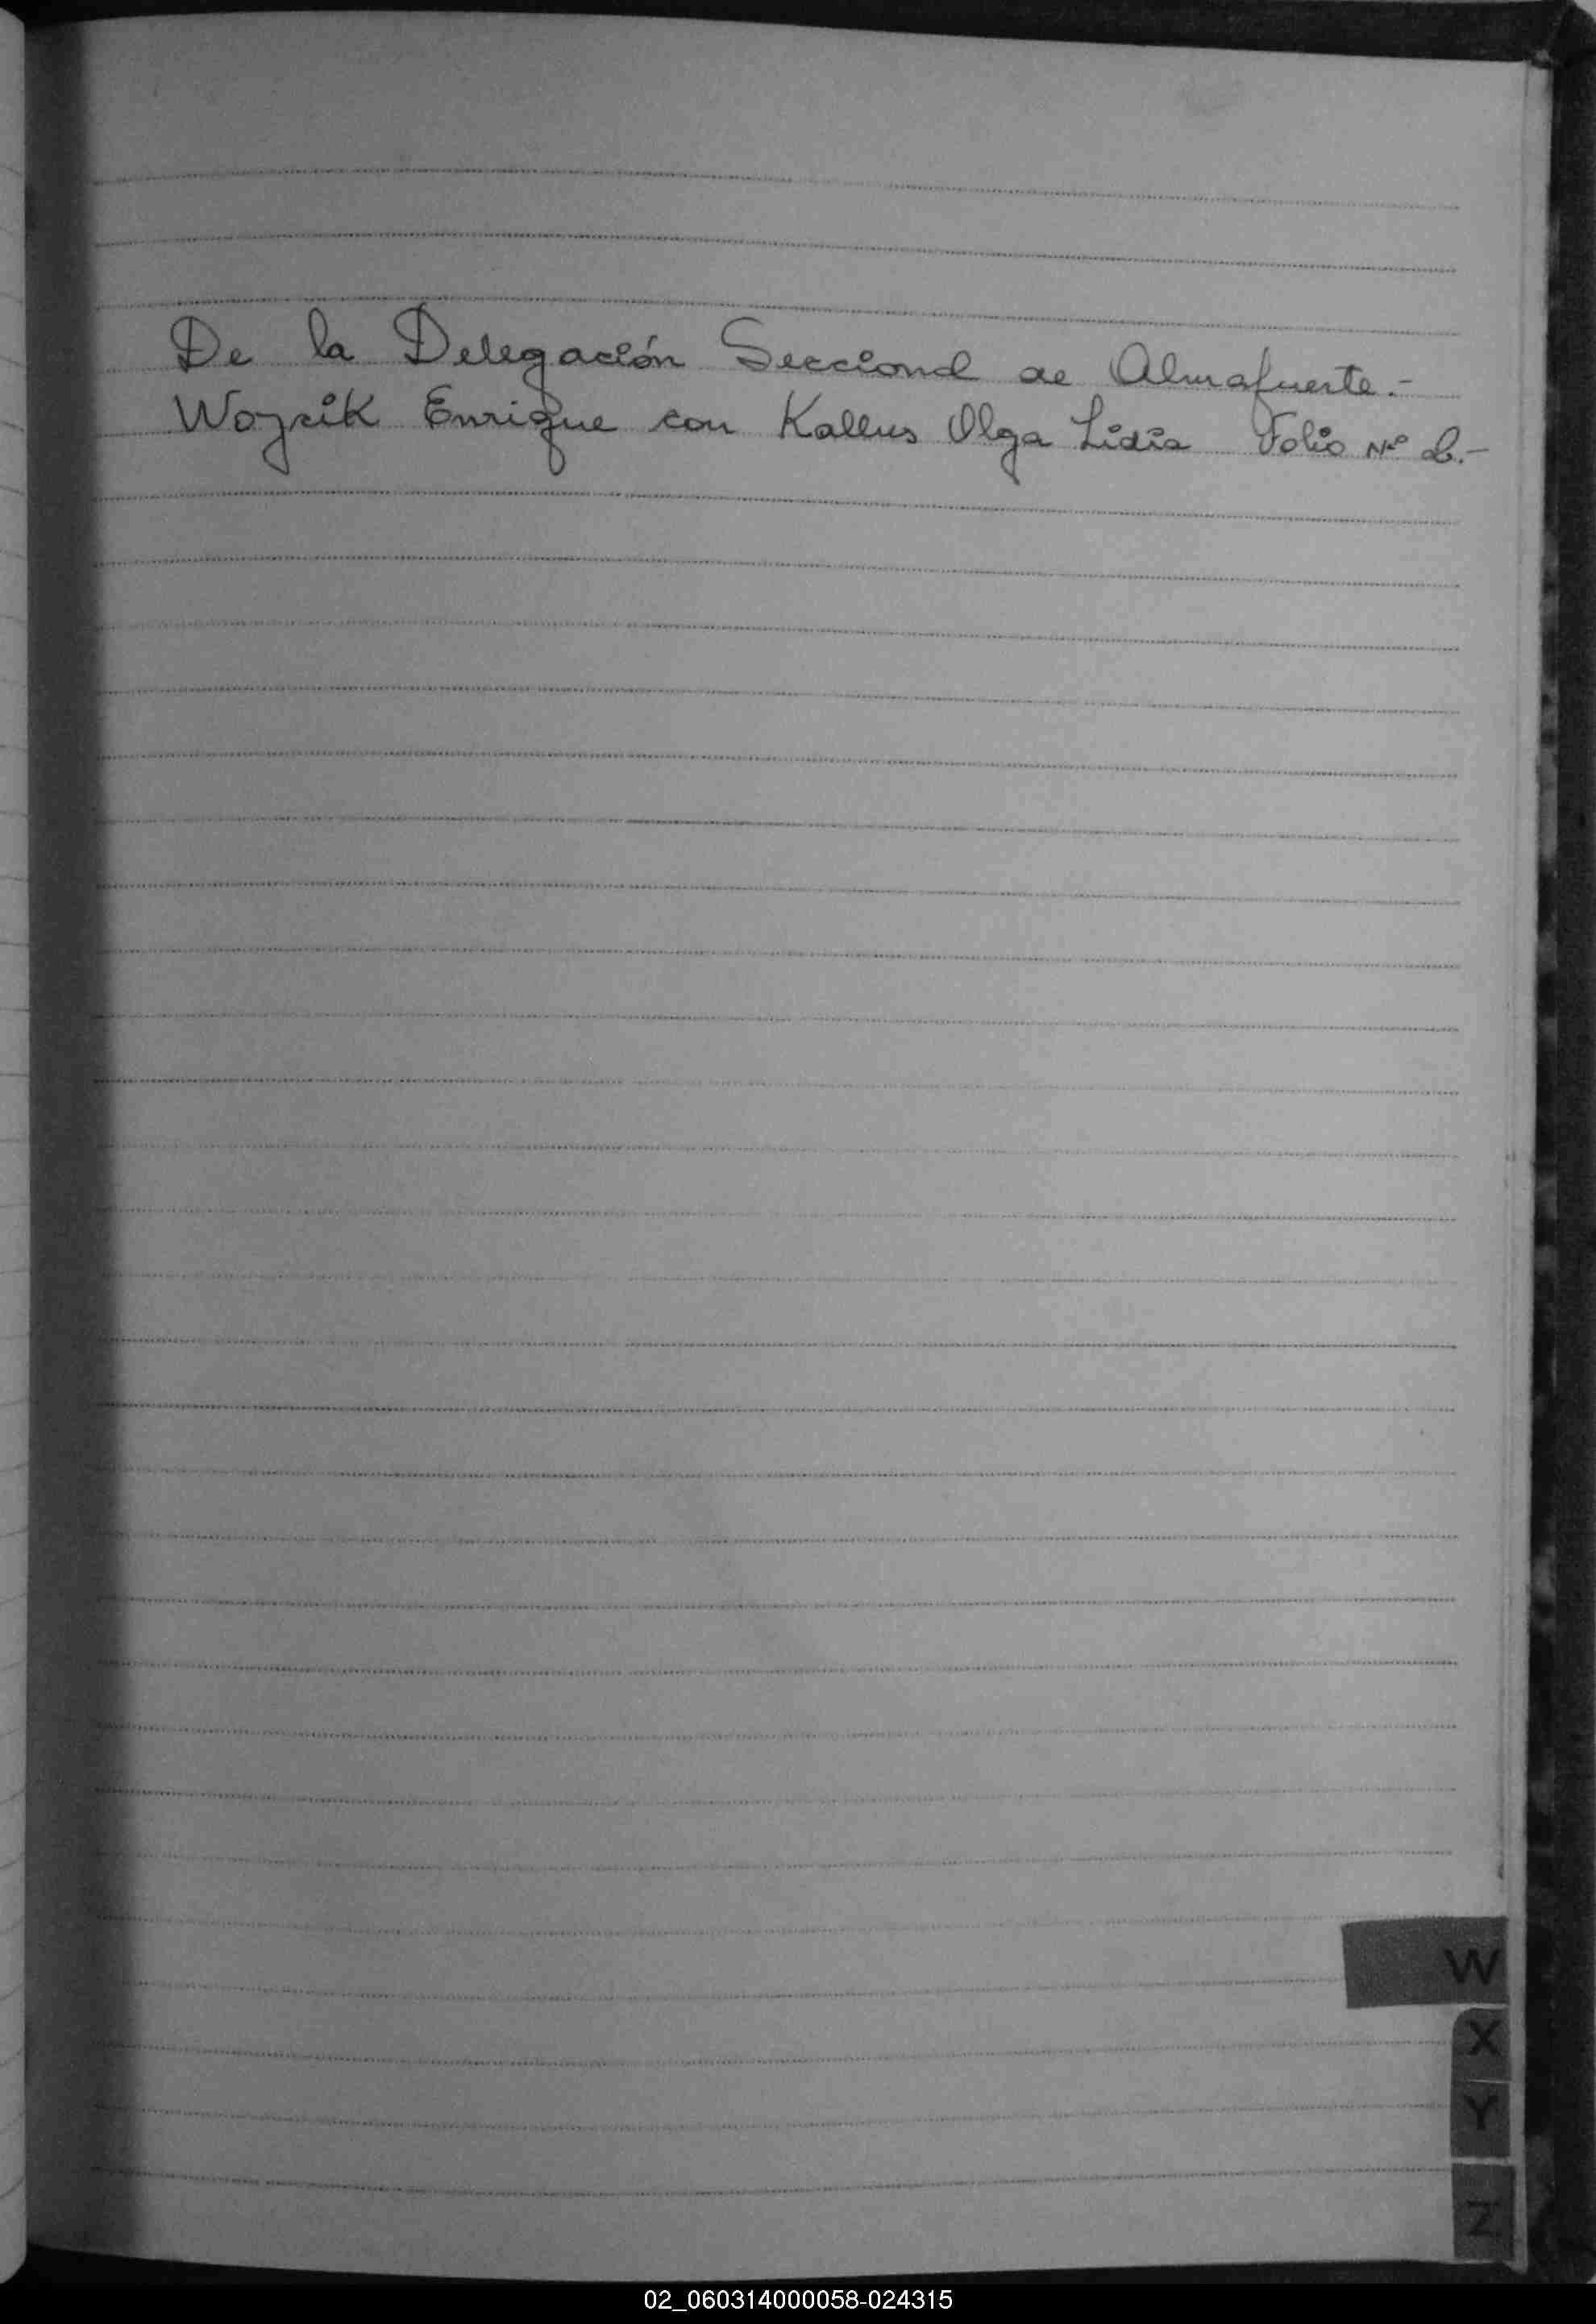 De la Delegación Seccional de Almafuerte.-
Wojcik Enrique con Kallus Olga Lidia Folio Nº 2.-
W
X
Y
Z
02_060314000058-024315